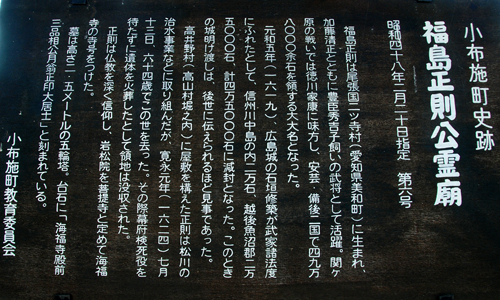 小布施町史跡
福島正則公霊廟
昭和四十八年二月二十日指定　第六号
福島正則は尾張国二ツ寺村（愛知県美和町）に生まれ、
加藤清正とともに豊臣秀吉子飼いの武将として活躍。関ヶ
原の戦いでは徳川家康に味方し、安芸・備後二国で四九万
八〇〇〇余石を領する大大名となった。
元和五年（一六一九）、広島城の石垣修築が武家諸法度
にふれたとして、信州川中島の内二万石、越後魚沼郡二万
五〇〇〇石、計四万五〇〇〇石に減封となった。このとき
の城明け渡しは、後世に伝えられるほど見事であった。
高井野村（高山村堀之内）に屋敷を構えた正則は松川の
治水事業などに取り組んだが、寛永元年（一六二四）七月
十三日、六十四歳でこの世を去った。その際幕府検死役を
待たずに遺体を火葬したとして領地は没収された。
正則は仏教を深く信仰し、岩松院を菩提寺と定めて海福
寺の寺号をつけた。
墓は高さ二・五メートルの五輪塔。台石に「海福寺殿前
三品相公月翁正印大居士」と刻まれている。
小布施町教育委員会